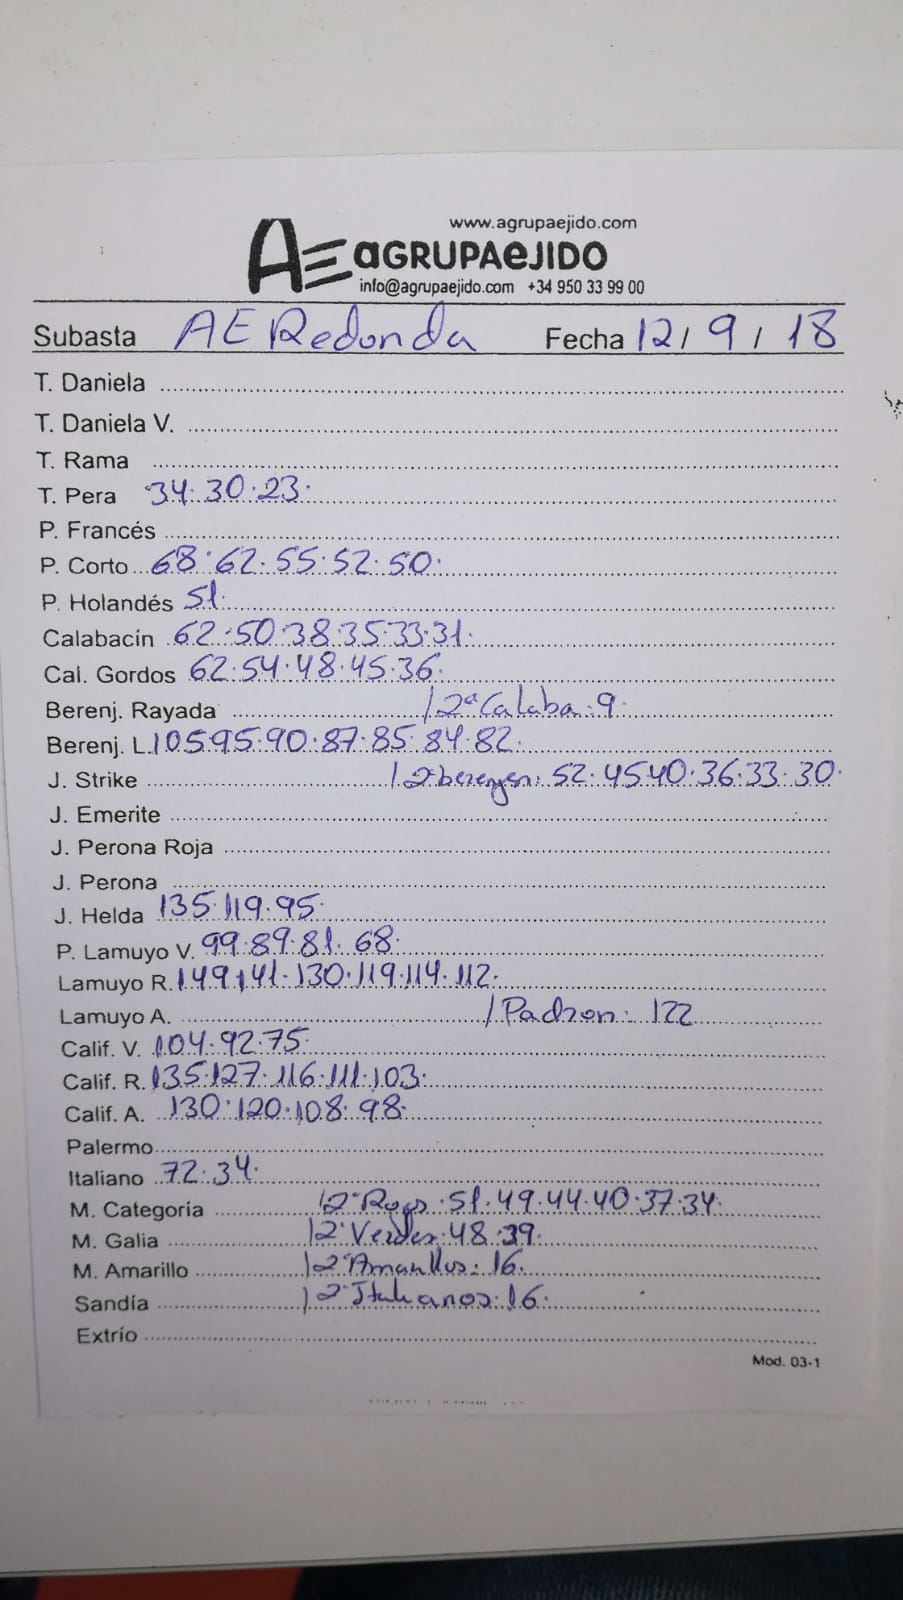 www.agrupaejido.com
AE aGRUPAeJIDO
info@agrupaejido.com +34 950 33 99 00
Subasta AE Redonda Fecha 12/9/18
T. Daniela
T. Daniela V.
T. Rama
T. Pera 34·30·23·
P. Francés
P. Corto 68·62·55·52·50·
P. Holandés 51·
Calabacín 62·50·38·35·33·31·
Cal. Gordos 62·54·48·45·36·
Berenj. Rayada /2ª Calaba: 9·
Berenj. L. 105·95·90·87·85·84·82·
J. Strike /2ª berengen: 52·45·40·36·33·30·
J. Emerite
J. Perona Roja
J. Perona
J. Helda 135·119·95·
P. Lamuyo V. 99·89·81·68·
Lamuyo R. 149·141·130·119·114·112·
Lamuyo A. /Padron: 122
Calif. V. 104·92·75·
Calif. R. 135·127·116·111·103·
Calif. A. 130·120·108·98·
Palermo
Italiano 72·34·
M. Categoria /2ª Rojos: 51·49·44·40·37·34·
M. Galia /2ª Verdes: 48·39·
M. Amarillo /2ª Amarillos: 16·
Sandía /2ª Italianos: 16·
Extrío
Mod. 03-1